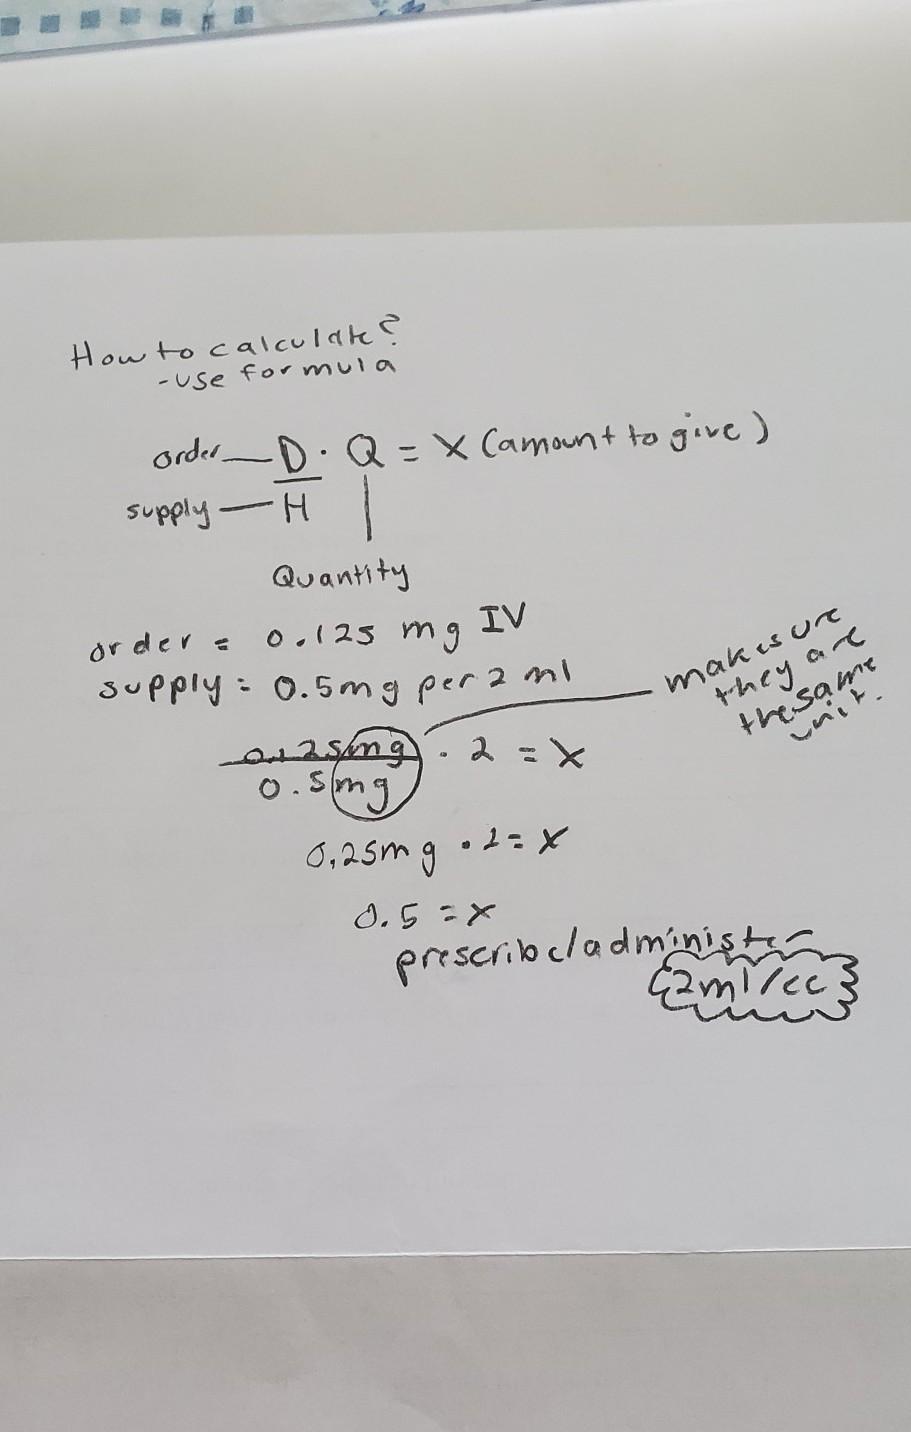 How to calculate?
-use formula
order — D · Q = X (amount to give)
supply — H
Quantity
order = 0.125 mg IV
supply = 0.5mg per 2 ml
make sure
they are
the same
unit.
0.125mg · 2 = X
0.5mg
0.25mg · 2 = X
0.5 = X
prescribe/administer
2ml/cc